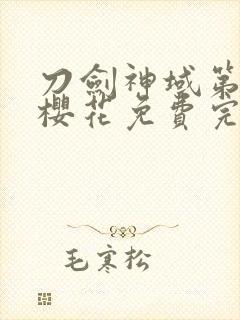 刀劍神域第
櫻花免費完
毛寒松